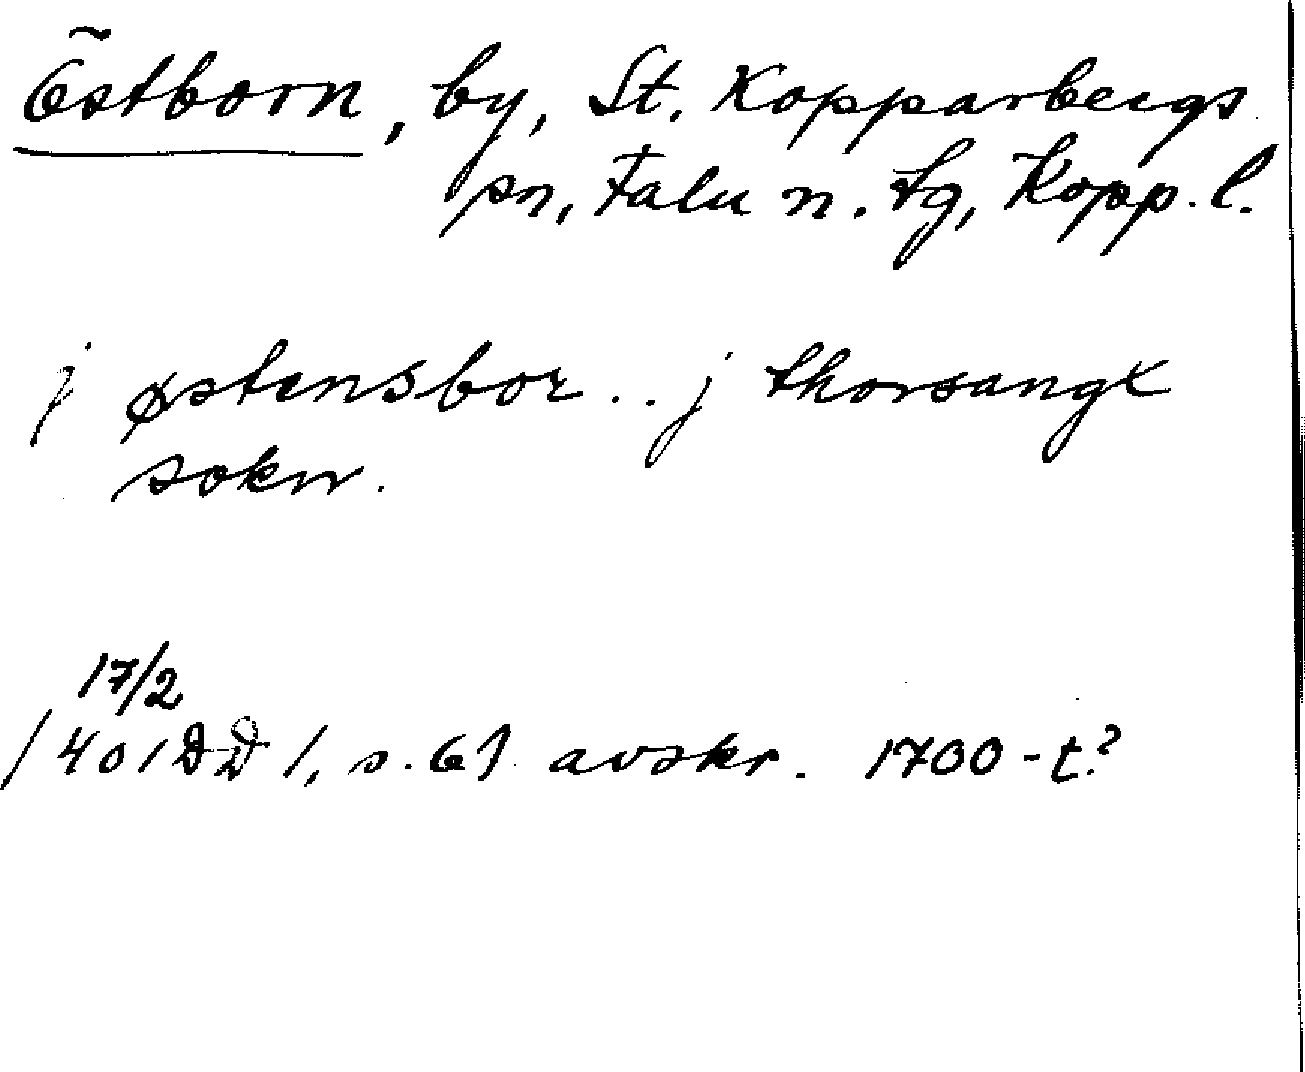 Östborn, by, St. Kopparbergs
sn, Falu n. tg, Kopp. l.
j østensbor .. j thorsangx
sokn.
17/2
1401 DD 1, s. 61 avskr. 1700-t?